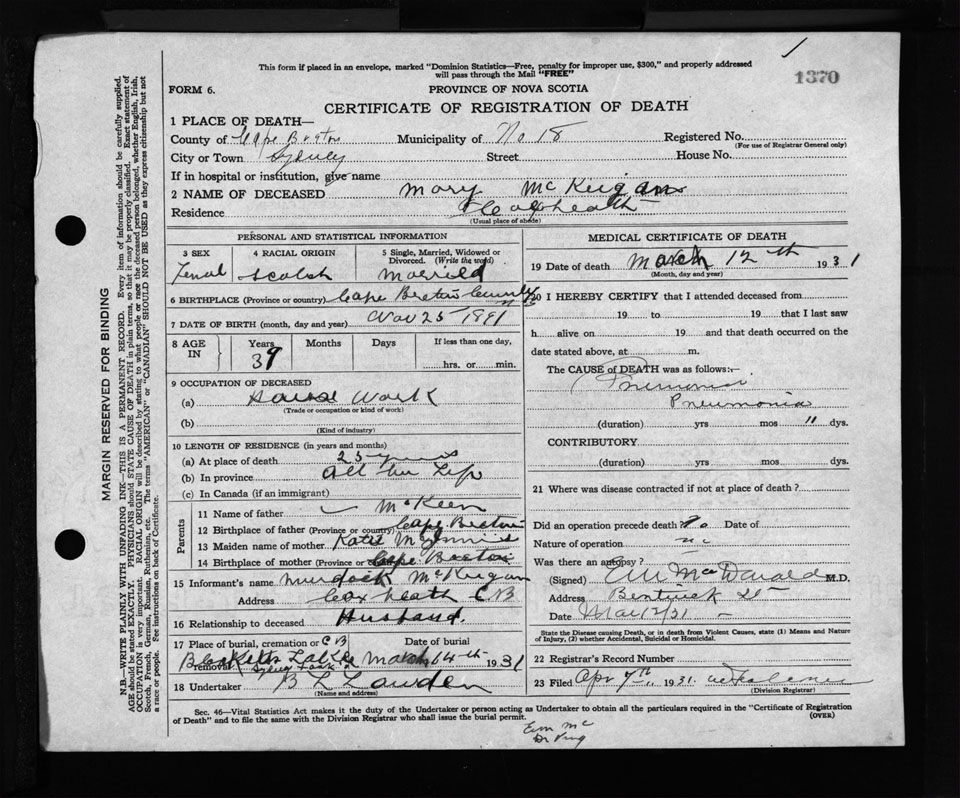 This form if placed in an envelope, marked "Dominion Statistics—Free, penalty for improper use, $300," and properly addressed
will pass through the Mail "FREE"
1370
FORM 6.
PROVINCE OF NOVA SCOTIA
CERTIFICATE OF REGISTRATION OF DEATH
MARGIN RESERVED FOR BINDING
N.B.—WRITE PLAINLY WITH UNFADING INK—THIS IS A PERMANENT RECORD. Every item of information should be carefully supplied.
AGE should be stated EXACTLY. PHYSICIANS should STATE CAUSE OF DEATH in plain terms, so that it may be properly classified. Exact statement of
OCCUPATION is very important. RACIAL ORIGIN will be described by stating to what people or race the deceased person belonged, whether English, Irish,
Scotch, French, German, Russian, Ruthenian, etc. The terms "AMERICAN" or "CANADIAN" SHOULD NOT BE USED as they express citizenship but not
a race or people. See instructions on back of Certificate.
1 PLACE OF DEATH—
County of Cape Breton Municipality of No 18 Registered No.
(For use of Registrar General only)
City or Town Sydney Street House No.
If in hospital or institution, give name
2 NAME OF DECEASED Mary McKeigan
Residence Coxheath
(Usual place of abode)
PERSONAL AND STATISTICAL INFORMATION
3 SEX 4 RACIAL ORIGIN 5 Single, Married, Widowed or
Divorced. (Write the word)
Femal Scotch Married
6 BIRTHPLACE (Province or country) Cape Breton County
7 DATE OF BIRTH (month, day and year) Nov 25 1891
8 AGE IN Years Months Days If less than one day,
39 hrs. or min.
9 OCCUPATION OF DECEASED
(a) House Work
(Trade or occupation or kind of work)
(b)
(Kind of industry)
10 LENGTH OF RESIDENCE (in years and months)
(a) At place of death 25 years
(b) In province All her Life
(c) In Canada (if an immigrant)
Parents
11 Name of father McKeen
12 Birthplace of father (Province or country) Cape Breton
13 Maiden name of mother Katie McGinnis
14 Birthplace of mother (Province or Cape Breton
15 Informant's name Murdock McKeigan
Address Coxheath CB
16 Relationship to deceased Husband.
17 Place of burial, cremation or CB Date of burial
removal March 14th 1931
18 Undertaker B L Lawden
(Name and address)
MEDICAL CERTIFICATE OF DEATH
19 Date of death March 12th 1931
(Month, day and year)
20 I HEREBY CERTIFY that I attended deceased from
19 to 19 that I last saw
h alive on 19 and that death occurred on the
date stated above, at m.
The CAUSE of DEATH was as follows:—
Pneumonia
Pneumonia
(duration) yrs mos 11 dys.
CONTRIBUTORY
(duration) yrs mos dys.
21 Where was disease contracted if not at place of death?
Did an operation precede death? No Date of
Nature of operation
Was there an autopsy?
(Signed) McDonald M.D.
Address Bentinck St
Date Mar 12/31
State the Disease causing Death, or in death from Violent Causes, state (1) Means and Nature
of Injury, (2) whether Accidental, Suicidal or Homicidal.
22 Registrar's Record Number
23 Filed Apr 7th 1931.
(Division Registrar)
Sec. 46—Vital Statistics Act makes it the duty of the Undertaker or person acting as Undertaker to obtain all the particulars required in the "Certificate of Registration
of Death" and to file the same with the Division Registrar who shall issue the burial permit.
(OVER)